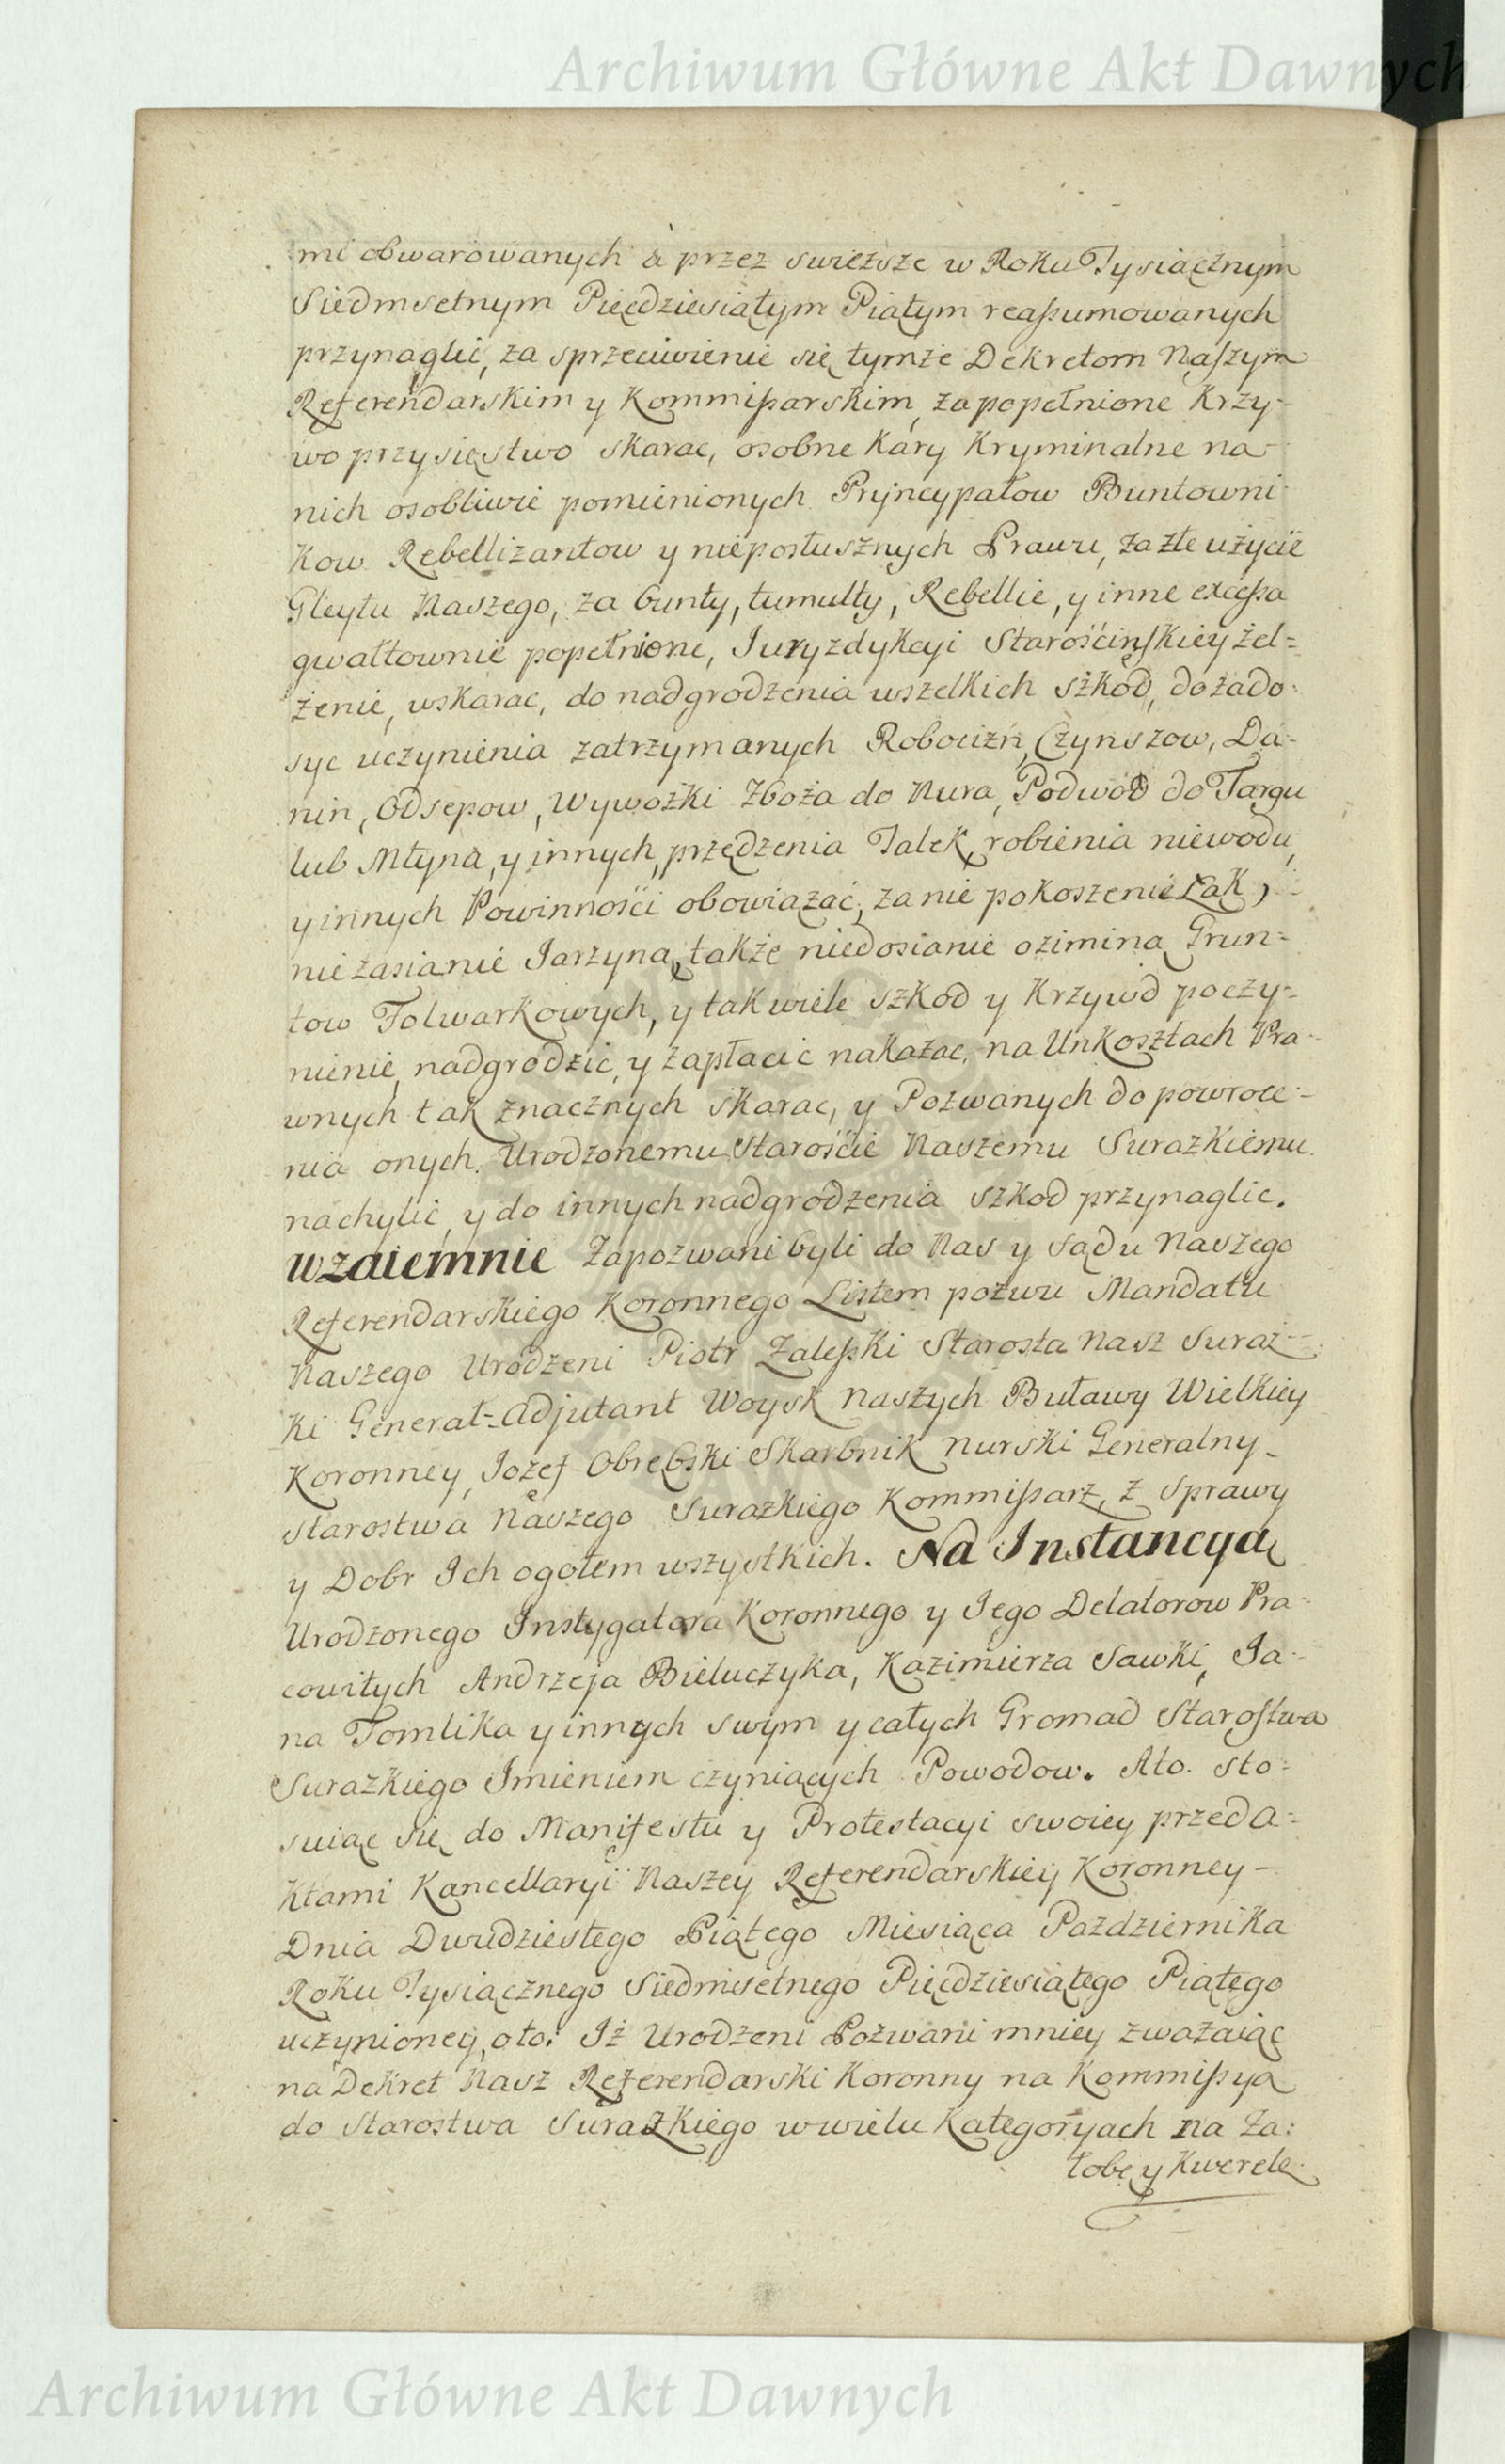 Archiwum Główne Akt Dawnych
mi obwarowanych à przez swieższe w Roku Tysiącznym
Siedmsetnym Pięcdziesiątym Piątym reaſsumowanych
przynaglić, za sprzeciwienie się tymże Dekretom Naſzym
Referendarskim y Kommiſsarskim, za popełnione Krzy-
wo przysięstwo skarac, osobne Kary Kryminalne na
nich osobliwie pomienionych Pryncypałow Buntowni
Kow Rebellizantow y nieposłusznych Prawu, za złe użycie
Gleytu Naszego, za bunty, tumulty, Rebellie, y inne exceſsa
gwałtownie popełnione, Juryzdykcyi Starościnſkiey żel=
żenie, wskarac, do nadgrodzenia wszelkich szkod, do zado
syc uczynienia zatrzymanych Robocizń, Czynszow, Da-
nin, Odsepow, Wywozki Zboża do Nura, Podwod do Targu
lub Młyna, y innych, przędzenia Talek, robienia niewodu,
y innych Powinności obowiązać, za nie pokoszenie Łąk,
nie zasianie Jarzyną, także niedosianie oziminą Grun=
tow Folwarkowych, y tak wiele szkod y Krzywd poczy-
nienie, nadgrodzic, y zapłacic nakazac, na Unkosztach Pra-
wnych tak znacznych skarac, y Pozwanych do powroce-
nia onych. Urodzonemu Staroście Naszemu Surazkiemu
nachylić, y do innych nadgrodzenia szkod przynaglic.
Wzaiemnie Zapozwani byli do Nas y sądu Naszego
Referendarskiego Koronnego Listem pozwu Mandatu
Naszego Urodzeni Piotr Zaleſski Starosta Nasz Suraż-
ki Generał-Adjutant Woysk Naszych Buławy Wielkiey
Koronney, Jozef Obrębski Skarbnik Nurski Generalny
Starostwa Naszego Surazkiego Kommiſsarz, z Sprawy
y Dobr Ich ogołem wszystkich. Na Instancyą
Urodzonego Instygatora Koronnego y Jego Delatorow Pra-
cowitych Andrzeja Bieluczyka, Kazimierza Sawki, Ja-
na Tomlika y innych swym y całych Gromad Staroſtwa
Surazkiego Imieniem czyniących Powodow. Ato. sto=
suiąc się do Manifestu y Protestacyi swoiey przed A=
Ktami Kancellaryi Naszey Referendarskiey Koronney
Dnia Dwudziestego Piątego Miesiąca Pazdziernika
Roku Tysiącznego Siedmsetnego Pięcdziesiątego Piątego
uczynioney, oto: Iż Urodzeni Pozwani mniey zważaiąc
na Dekret Nasz Referendarski Koronny na Kommiſsyą
do Starostwa Surazkiego w wielu Kategoryach na Ża:
łobę y Kwerele
Archiwum Główne Akt Dawnych